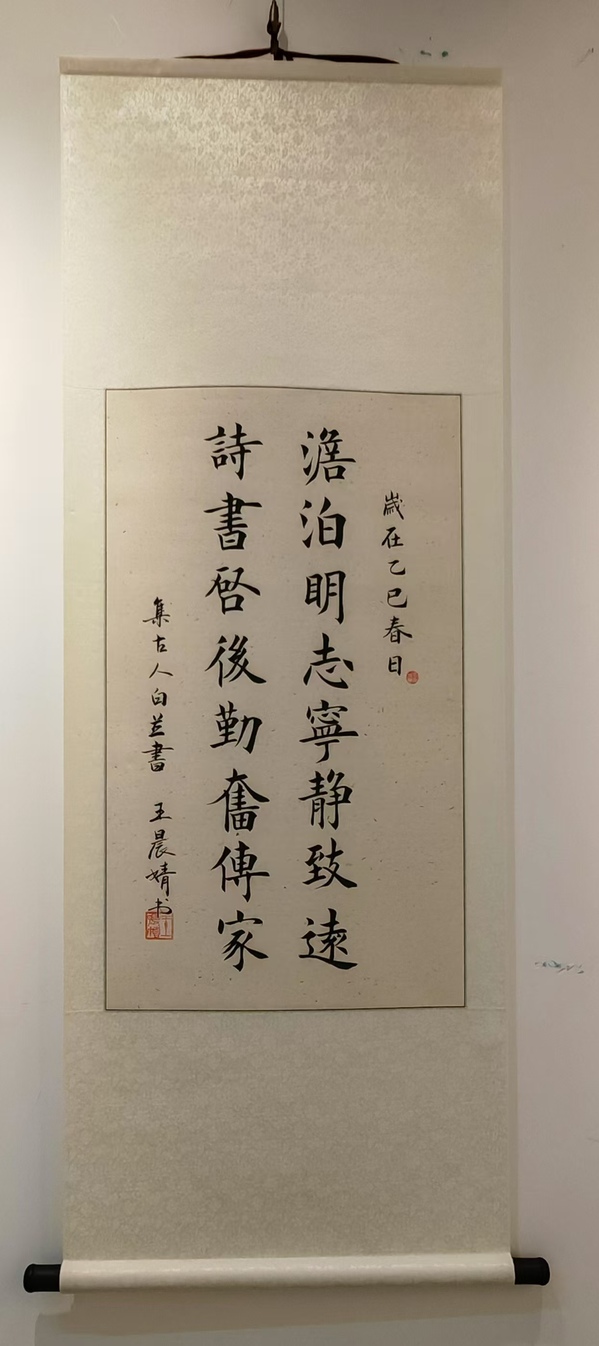 歲在乙巳春日
澹泊明志寧静致遠
詩書啓後勤奮傳家
集古人白蕉書 王晨婧书